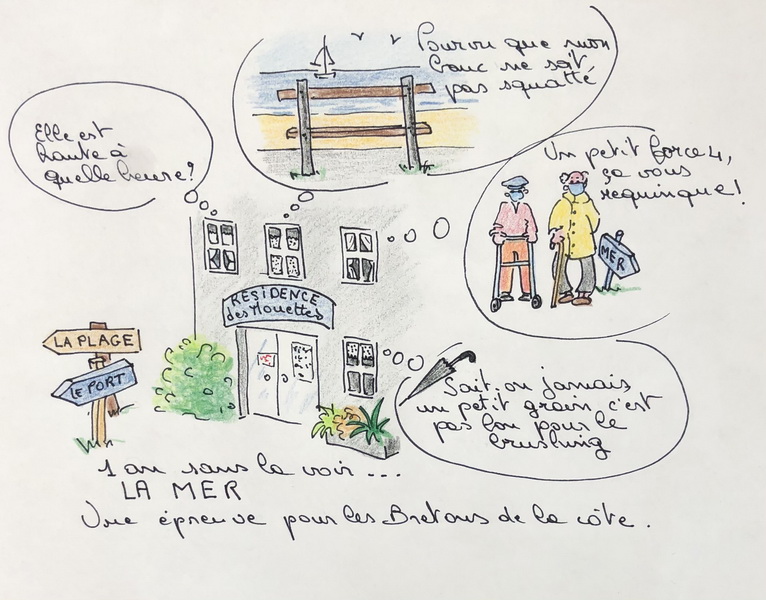 Pourvu que mon
banc ne soit
pas squatté
Elle est
haute à
quelle heure?
Un petit force 4,
ça vous
requinque!
MER
RÉSIDENCE
des Mouettes
LA PLAGE
LE PORT
Sait-on jamais
un petit grain c'est
pas bon pour le
brushing
1 an sans la voir ...
LA MER
Une épreuve pour les Bretons de la côte.